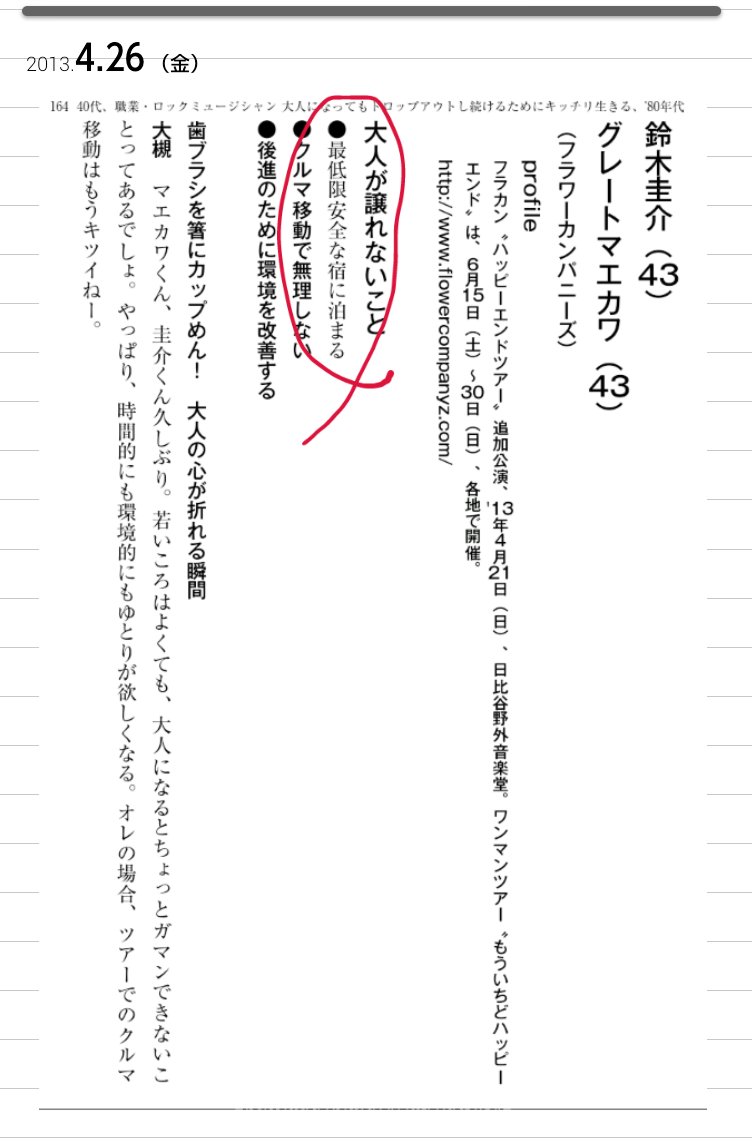 2013.4.26（金）
164 40代、職業・ロックミュージシャン 大人になってもドロップアウトし続けるためにキッチリ生きる、'80年代
鈴木圭介（43）
グレートマエカワ（43）
（フラワーカンパニーズ）
profile
フラカン〝ハッピーエンドツアー〟追加公演、'13年4月21日（日）、日比谷野外音楽堂。ワンマンツアー〝もういちどハッピー
エンド〟は、6月15日（土）～30日（日）、各地で開催。
http://www.flowercompanyz.com/
大人が譲れないこと
●最低限安全な宿に泊まる
●クルマ移動で無理しない
●後進のために環境を改善する
歯ブラシを箸にカップめん！　大人の心が折れる瞬間
大槻　マエカワくん、圭介くん久しぶり。若いころはよくても、大人になるとちょっとガマンできないこ
とってあるでしょ。やっぱり、時間的にも環境的にもゆとりが欲しくなる。オレの場合、ツアーでのクルマ
移動はもうキツイねー。